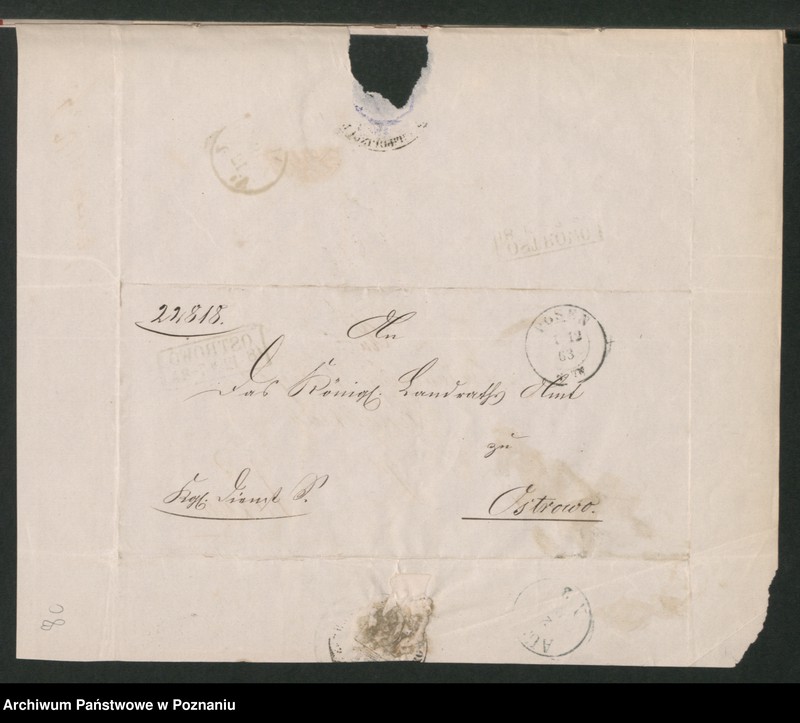 22818.
An
Das Königl. Landraths Amt
zu
Ostrowo.
Kgl. Dienst S.
POSEN
12
63
80
Archiwum Państwowe w Poznaniu